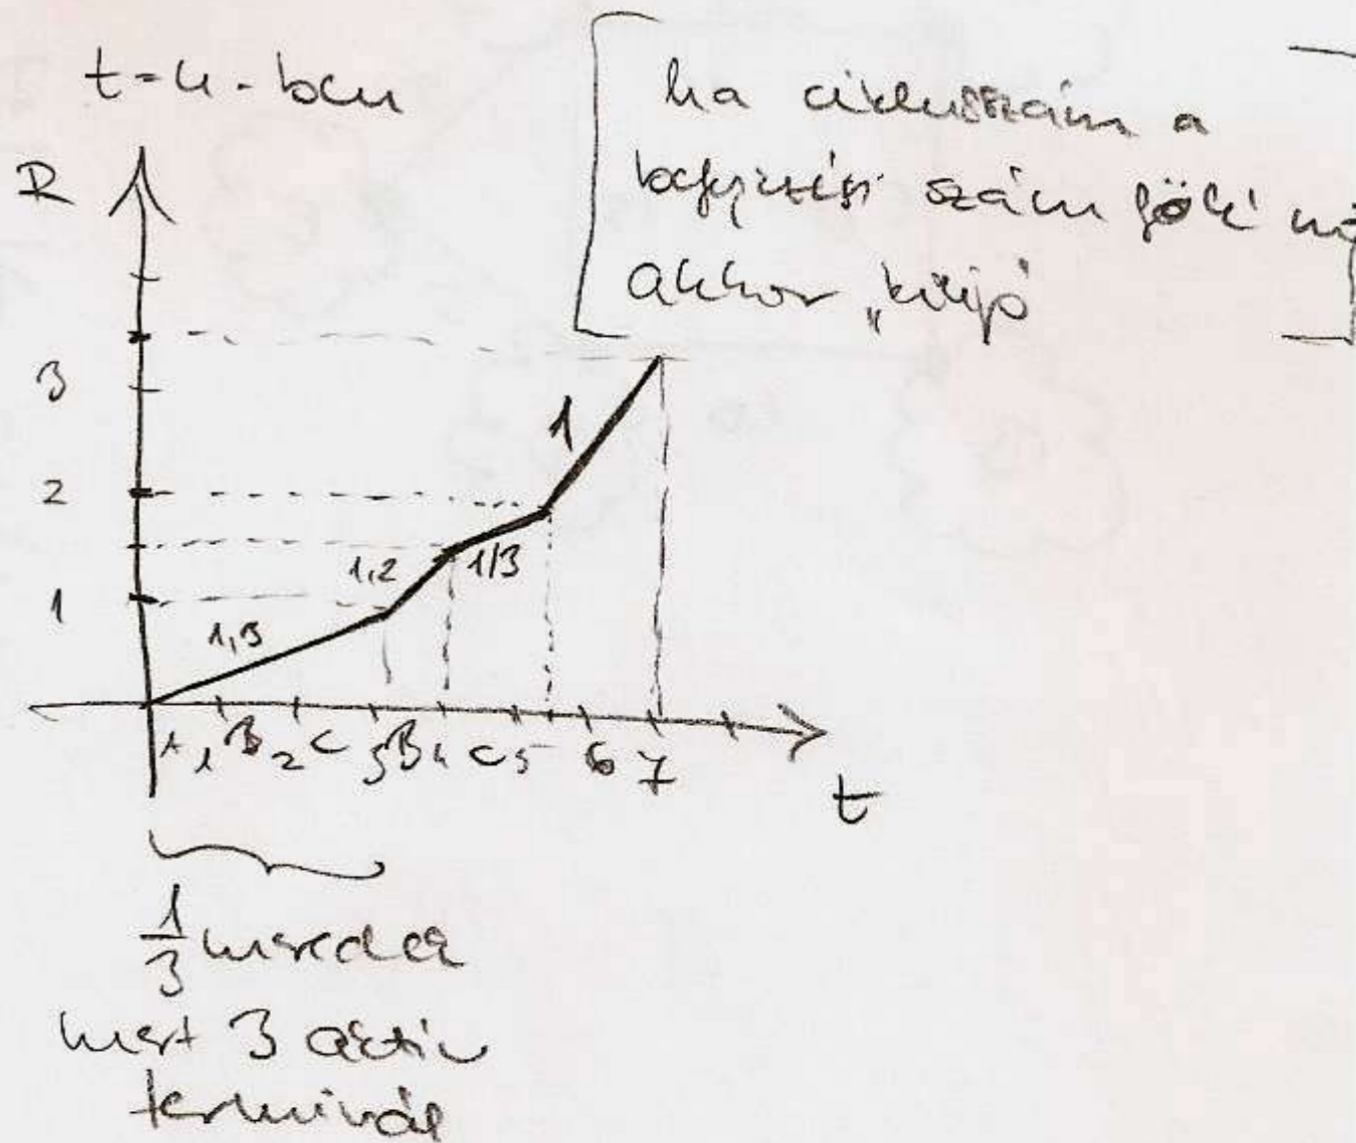 t=4-ben
ha ciklusszám a
befejezési szám fölé
akkor „kilép"
R
3
2
1
1
1,2
1/3
1,3
A 1 B 2 C 3 B 4 C 5 6 7
t
1/3 meredek
mert 3 aktív
terminál